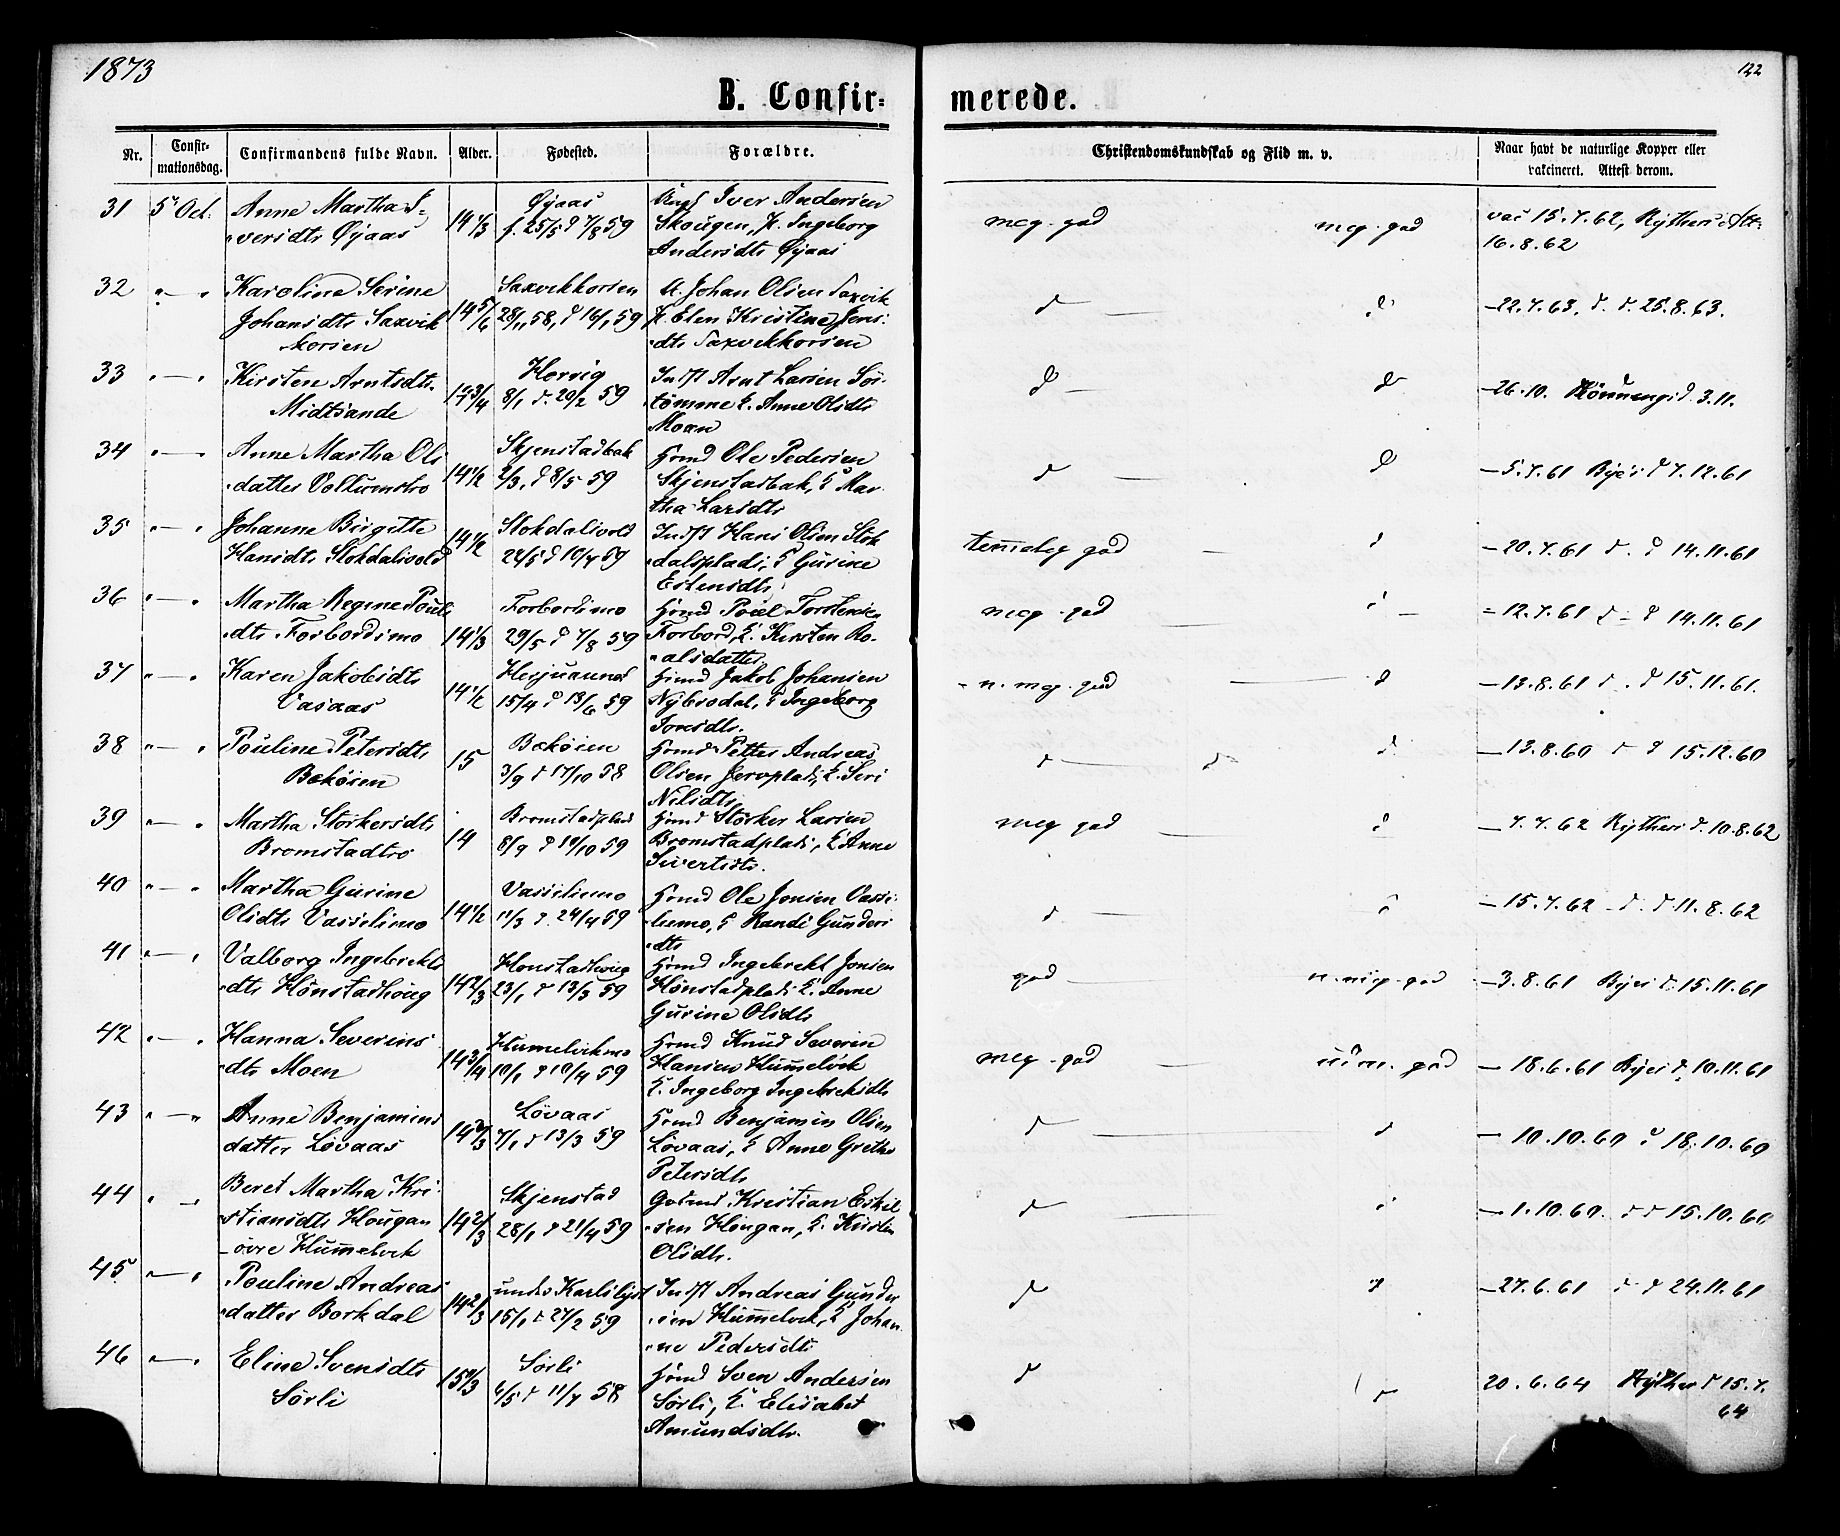 1873
122
B. Confir=
merede.
Nr.
Confir-
mationsdag.
Confirmandens fulde Navn.
Alder.
Fødested.
Forældre.
Christendomskundskab og Flid m. v.
Naar havt de naturlige Kopper eller
vakcineret. Attest derom.
31 5 Oct. Anne Martha I-
versdtr Øjaas
14 1/3
Øjaas
f. 25/5 d 7/8 59
Iver Andersen
Skougen, Ingeborg
Andersdtr Øjaas
meg. god
meg. god
vac 15.7.62, Rythers Att.
16.8.62
32 " — " Karoline Serine
Johansdtr Saxvik
korsen
14 5/6
Saxvekkorsen
28/11 58, d 16/1 59
Johan Olsen Saxvik
Elen Kristine Jens-
dtr Saxvekkorsen
d —
d
— 22.7.63. d. d. 25.8.63.
33 " — " Kirsten Arntsdtr
Midtsande
14 3/4
Hervig
8/1 d. 20/2 59
Indst Arnt Larsen Sør-
tømme & Anne Olsdtr
Moan
d —
d
— 26.10. d. 3.11.
34 " — " Anne Martha Ols
datter
14 1/2
Skjenstadbak
2/3, d 8/5 59
Hsmd Ole Pedersen
Skjenstadbak, & Mar-
tha Larsdtr
d —
d
— 5.7.61 Byes d 7.12.61
35 " — " Johanne Birgitte
Hansdtr Stokdalsvold
14 1/2
Stokdalsvold
24/5 d 10/7 59
Indst Hans Olsen Stok
dalsplads, & Gurine
Estensdtr
temmelig god —
d
— 20.7.61 d. d 14.11.61
36 " — " Martha Regine Pouls
dtr Forbordsmo
14 1/3
Forbordsmo
29/5 d 7/8 59
Hsmd Poul Torstensen
Forbord, & Kirsten Ro-
alsdatter
meg. god
d —
— 12.7.61 d — d 14.11.61
37 " — " Karen Jakobsdtr
Vasaas
14 1/2
15/4 d 13/6 59
Hsmd Jakob Johansen
Nybrodal, & Ingeborg
Jonsdtr.
n. meg. god —
d
— 13.8.61 d. d 15.11.61.
38 " — " Pouline Petersdtr
Bekøien
15
Bekøien
3/9 d 17/10 58
Hsmd Petter Andreas
Olsen & Seri
Nilsdtr
d — d
d
— 13.8.60 d d 15.12.60
39 " — " Martha Storkersdtr
Bromstadtrø
14
Bromstadplads
8/9 d 10/10 59
Hsmd Storker Larsen
Bromstadplads, & Anne
Sivertsdtr.
meg god —
d
— 7.7.62 Rythers d. 10.8.62
40 " — " Martha Gurine
Olsdtr Vasselimo
14 1/2
Vasselimo
11/3 d. 24/4 59
Hsmd Ole Jonsen Vasse-
limo, & Randi Gunders
dtr
d —
d
— 15.7.62 d. d. 11.8.62
41 " — " Valborg Ingebrekts
dtr Hønstadhoug
14 2/3
Honstadhoug
23/1 d 13/3 59
Hsmd Ingebrekt Jonsen
Hønstadplads & Anne
Gurine Olsdtr
god —
n. meg. god
— 3.8.61 Byes d. 15.11.61
42 " — " Hanna Severins
dtr Moen
14 3/4
Humelvikmo
10/1 d 10/4 59
Hsmd Knud Severin
Hansen Hummelvik
& Ingeborg Ingebrektsdtr
meg. god —
god
— 18.6.61 Byes d. 10.11.61
43 " — " Anne Benjamins
datter Løvaas
14 2/3
Løvaas
7/1 d 13/3 59
Hsmd Benjamin Olsen
Løvaas, & Anne Grethe
Petersdtr
d —
d
— 10.10.60 d 18.10.60
44 " — Beret Martha Kri-
stiansdtr Hougan
øvre Hummelvik
14 2/3
Skjenstad
28/1 d 21/4 59
Kristian Eskil
sen Hougan, & Kirsten
Olsdtr.
d —
d
— 1.10.60. d d 15.10.60
45 " — " Pouline Andreas
datter Borkdal
14 2/3
under Karlslyst
15/1 d 27/2 59
Indst Andreas Gunder
sen Hummelvik, & Johan
ne Pedersdtr
d
d
— 27.6.61 d d 24.11.61
46 " — " Eline Svensdtr
Sørli
15 1/3
Sørli
6/5 d 11/7 58
Hsmd Sven Andersen
Sørli, & Elisabet
Amundsdtr.
d
d
20.6.64 Ryther d 15.7.
64